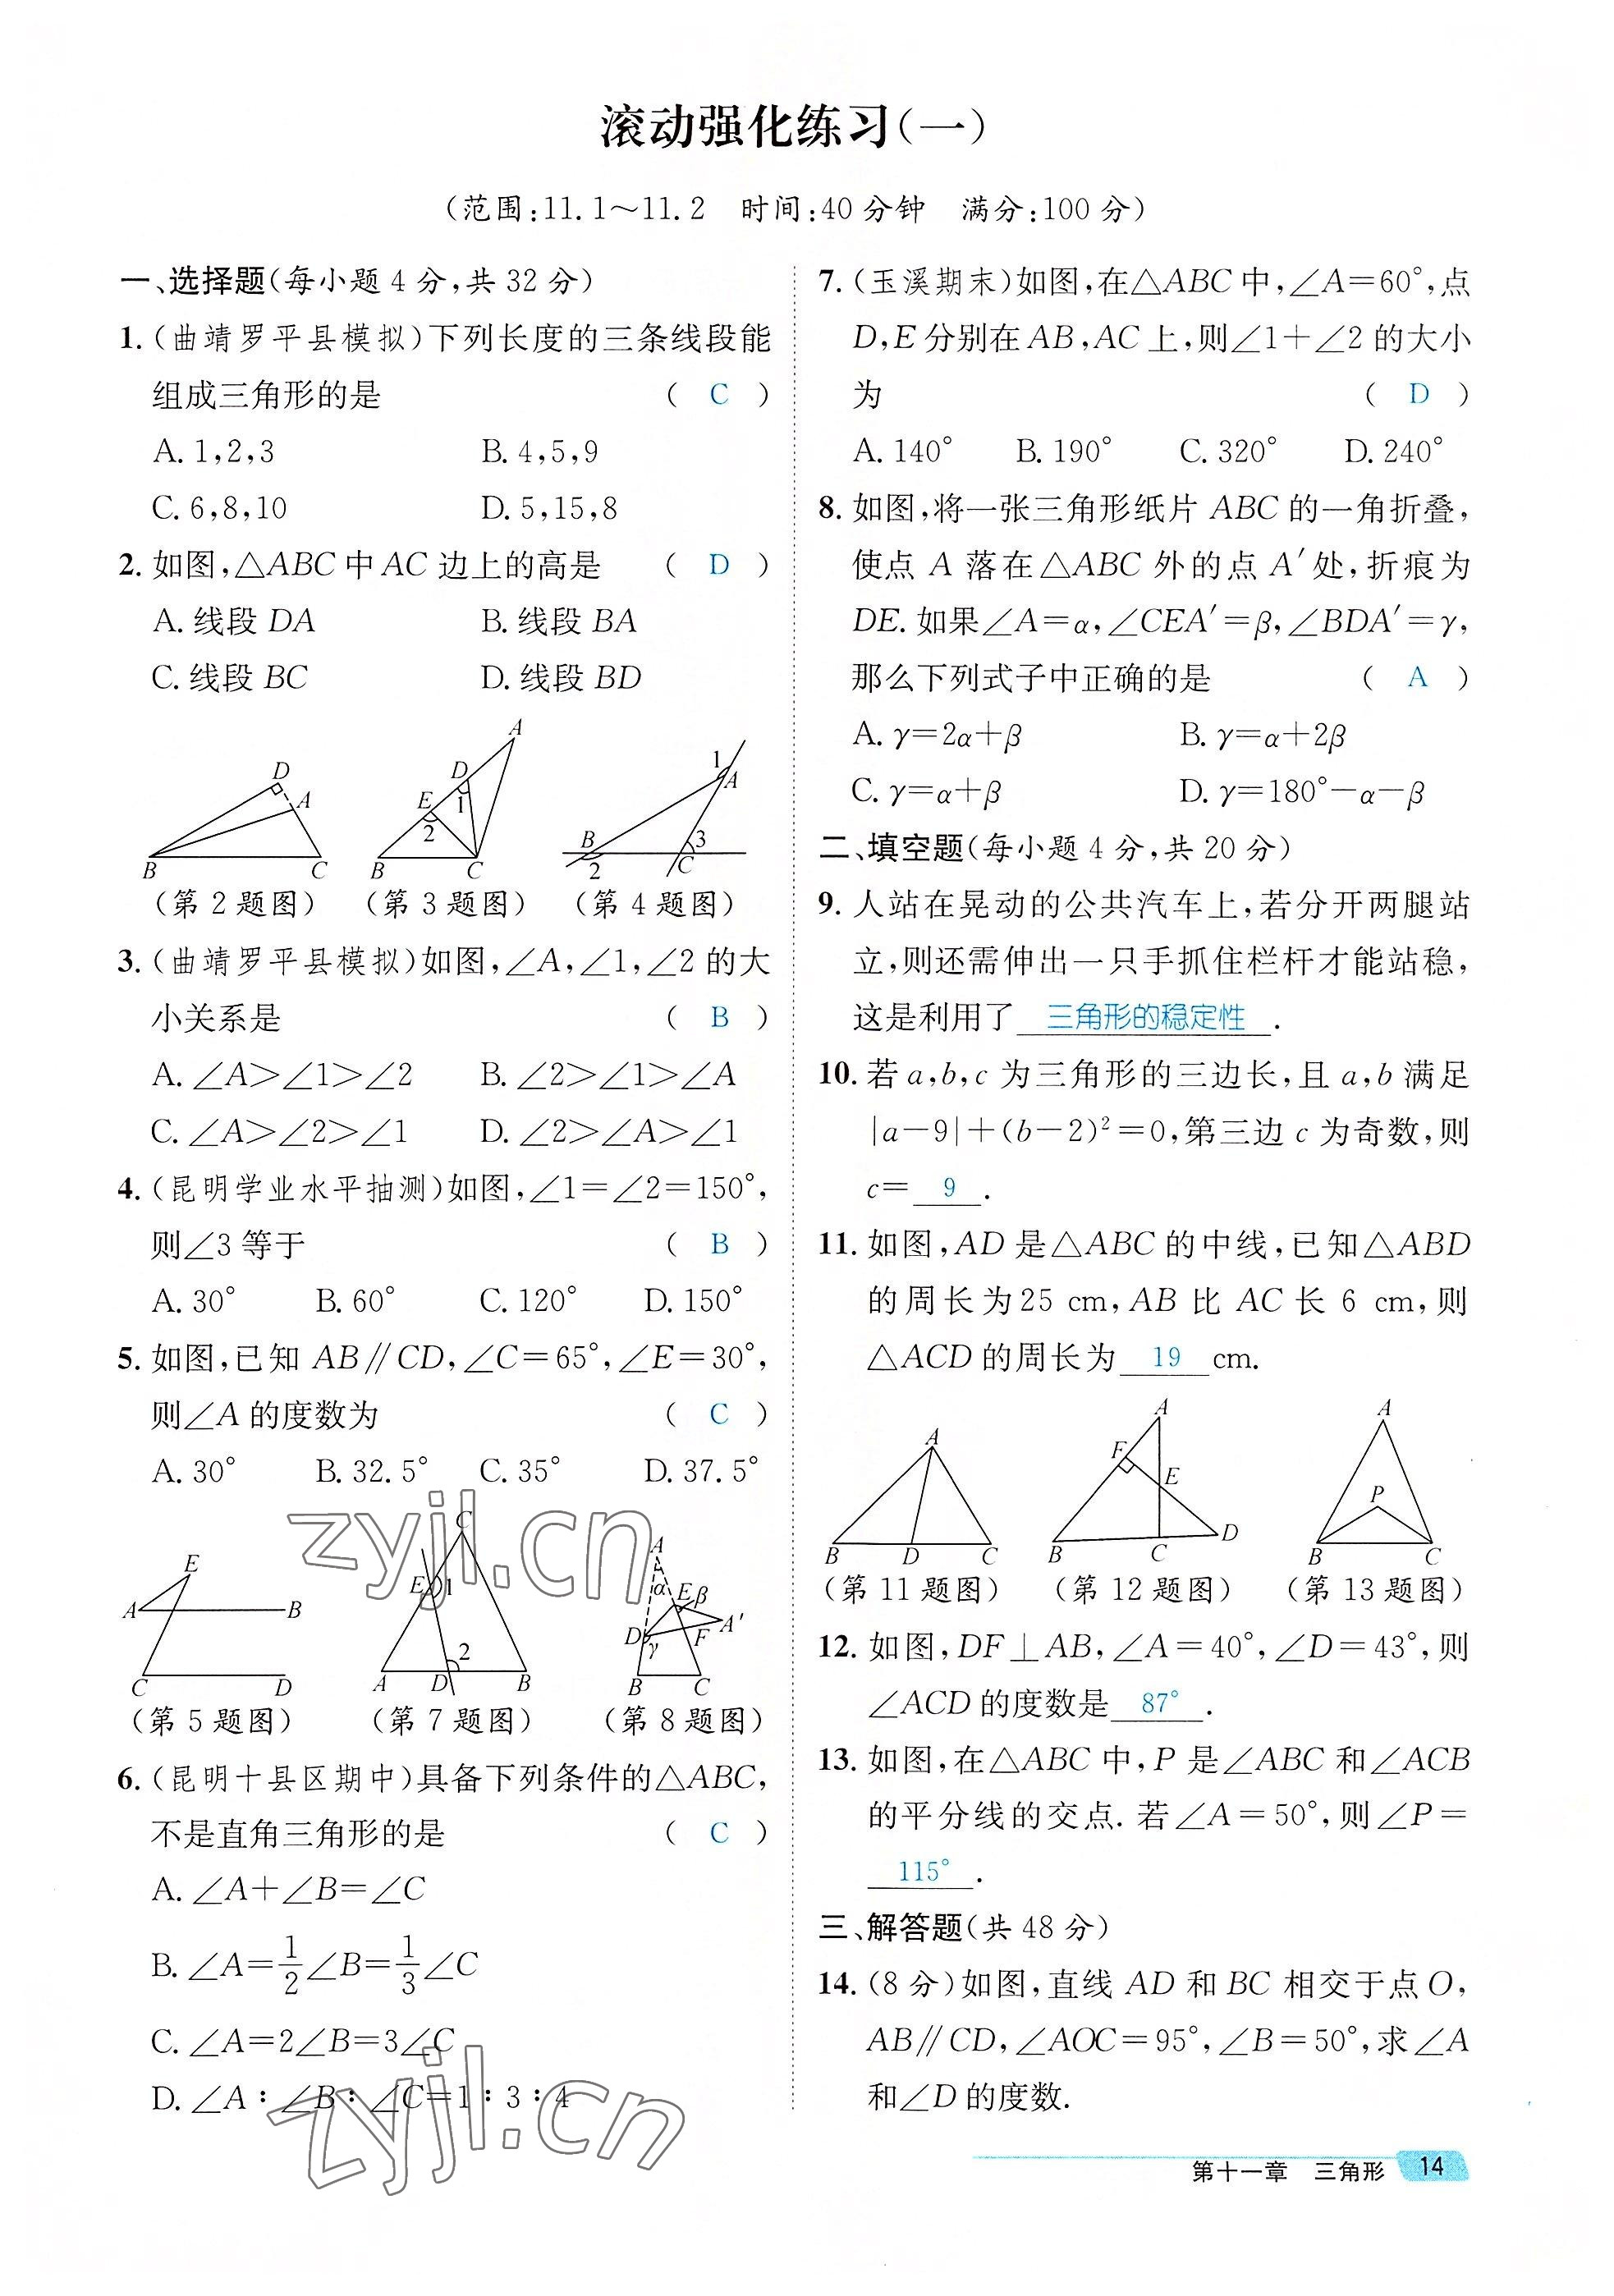 滚动强化练习(一)
(范围:11.1~11.2 时间:40分钟 满分:100分)
一、选择题(每小题4分,共32分)
1.(曲靖罗平县模拟)下列长度的三条线段能
组成三角形的是 ( C )
A.1,2,3 B.4,5,9
C.6,8,10 D.5,15,8
2.如图,△ABC中AC边上的高是 ( D )
A.线段DA B.线段BA
C.线段BC D.线段BD
D A B C
A D E 1 2 B C
1 A B 2 3 C
(第2题图) (第3题图) (第4题图)
3.(曲靖罗平县模拟)如图,∠A,∠1,∠2的大
小关系是 ( B )
A.∠A>∠1>∠2 B.∠2>∠1>∠A
C.∠A>∠2>∠1 D.∠2>∠A>∠1
4.(昆明学业水平抽测)如图,∠1=∠2=150°,
则∠3等于 ( B )
A.30° B.60° C.120° D.150°
5.如图,已知AB∥CD,∠C=65°,∠E=30°,
则∠A的度数为 ( C )
A.30° B.32.5° C.35° D.37.5°
zyjl.cn
E A B C D
C E 1 2 A D B
A α E β D γ F A′ B C
(第5题图) (第7题图) (第8题图)
6.(昆明十县区期中)具备下列条件的△ABC,
不是直角三角形的是 ( C )
A.∠A+∠B=∠C
B.∠A=1/2∠B=1/3∠C
C.∠A=2∠B=3∠C
D.∠A∶∠B∶∠C=1∶3∶4
zyjl.cn
7.(玉溪期末)如图,在△ABC中,∠A=60°,点
D,E分别在AB,AC上,则∠1+∠2的大小
为 ( D )
A.140° B.190° C.320° D.240°
8.如图,将一张三角形纸片ABC的一角折叠,
使点A落在△ABC外的点A′处,折痕为
DE.如果∠A=α,∠CEA′=β,∠BDA′=γ,
那么下列式子中正确的是 ( A )
A.γ=2α+β B.γ=α+2β
C.γ=α+β D.γ=180°-α-β
二、填空题(每小题4分,共20分)
9.人站在晃动的公共汽车上,若分开两腿站
立,则还需伸出一只手抓住栏杆才能站稳,
这是利用了 三角形的稳定性 .
10.若a,b,c为三角形的三边长,且a,b满足
|a-9|+(b-2)²=0,第三边c为奇数,则
c= 9 .
11.如图,AD是△ABC的中线,已知△ABD
的周长为25 cm,AB比AC长6 cm,则
△ACD的周长为 19 cm.
A B D C
A F E D B C
A P B C
(第11题图) (第12题图) (第13题图)
12.如图,DF⊥AB,∠A=40°,∠D=43°,则
∠ACD的度数是 87° .
13.如图,在△ABC中,P是∠ABC和∠ACB
的平分线的交点.若∠A=50°,则∠P=
115° .
三、解答题(共48分)
14.(8分)如图,直线AD和BC相交于点O,
AB∥CD,∠AOC=95°,∠B=50°,求∠A
和∠D的度数.
第十一章 三角形 14